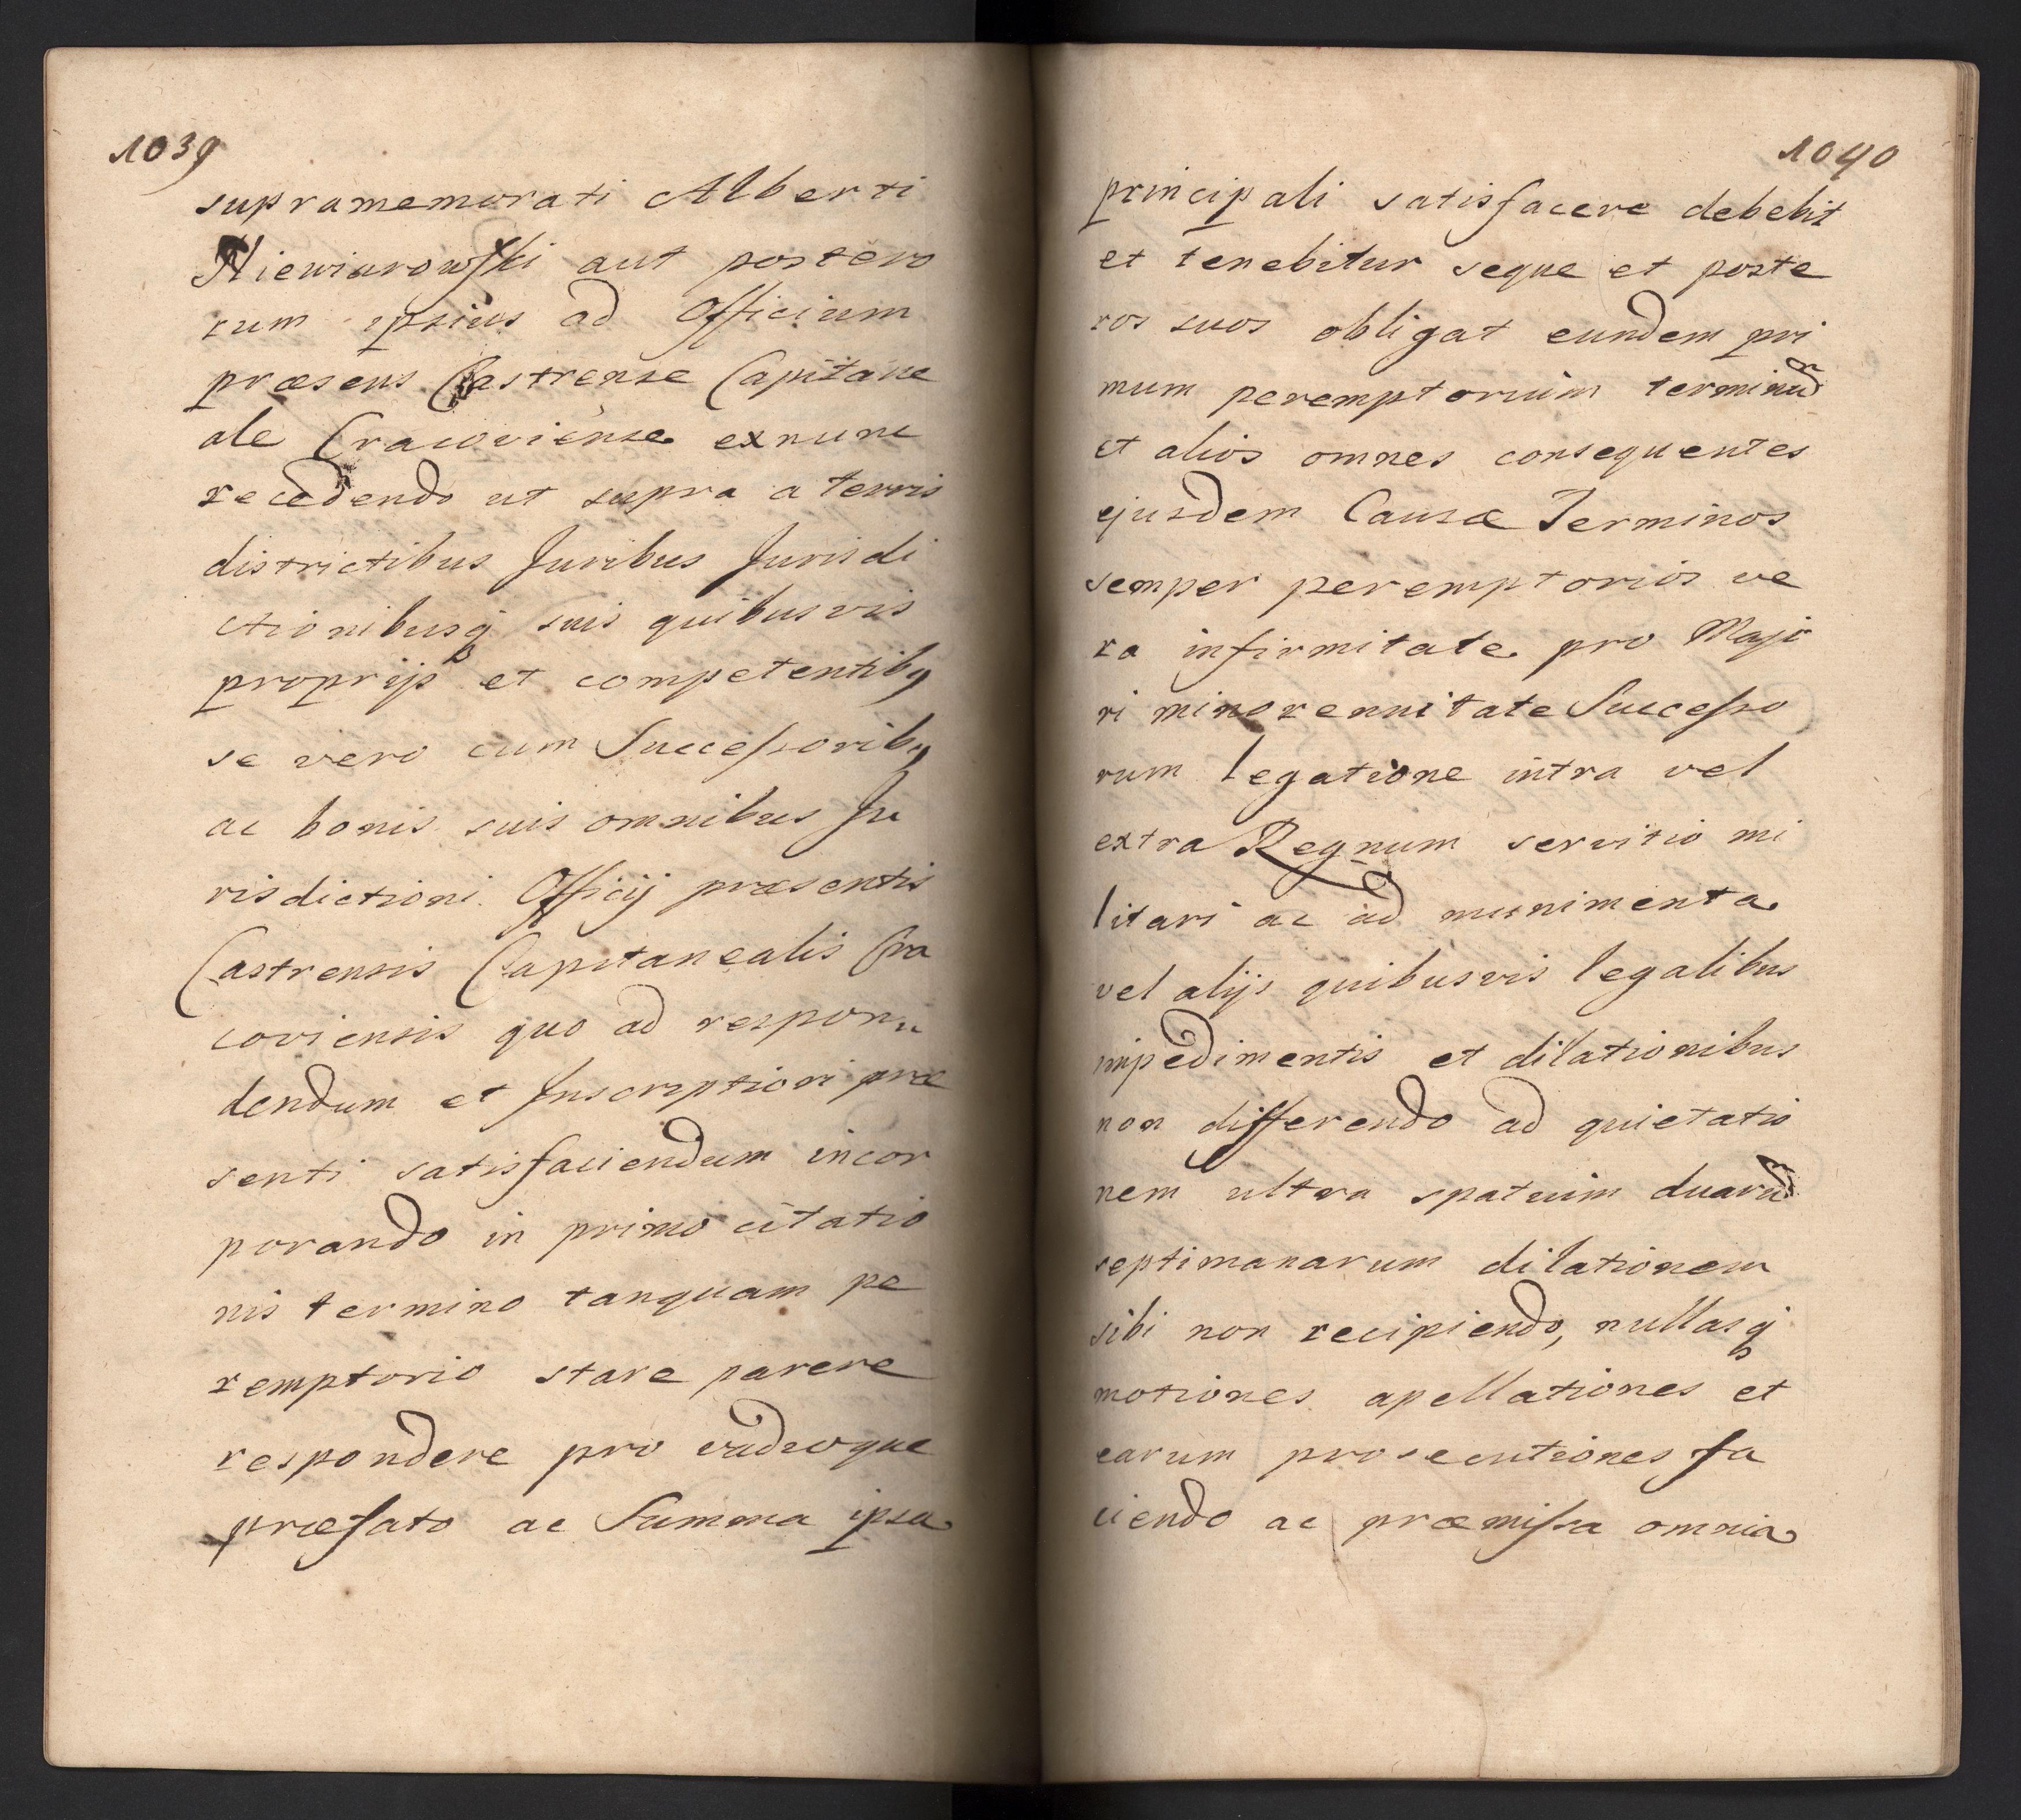 1039
supramemorati Alberti
Niewiarowski aut postero
rum ipsius ad Officium
præsens Castrense Capitane
ale Cracoviense exnunc
recedendo ut supra a terris
districtibus Juribus Jurisdi
ctionibusq suis quibusvis
proprijs et competentibq
se vero cum Successoribq
ac bonis suis omnibus Ju
risdictioni Officij præsentis
Castrensis Capitanealis Cra
coviensis quo ad respon
dendum et Inscriptioni præ
senti satisfaciendum incor
porando in primo citatio
nis termino tanquam pe
remptorio stare parere
respondere pro vadioque
præfato ac Summa ipsa
1040
principali satisfacere debebit
et tenebitur seque et poste
ros suos obligat eundem pri
mum peremptorium terminū
et alios omnes consequentes
ejusdem Causæ Terminos
semper peremptorios ve
ra infirmitate pro Majo
ri minorennitate Successo
rum legatione intra vel
extra Regnum servitio mi
litari ac ad munimenta
vel alijs quibusvis legalibus
impedimentis et dilationibus
non differendo ad quietatio
nem ultra spatium duarū
septimanarum dilationem
sibi non recipiendo, nullasq
motiones apellationes et
earum prosecutiones fa
ciendo ac præmissa omnia